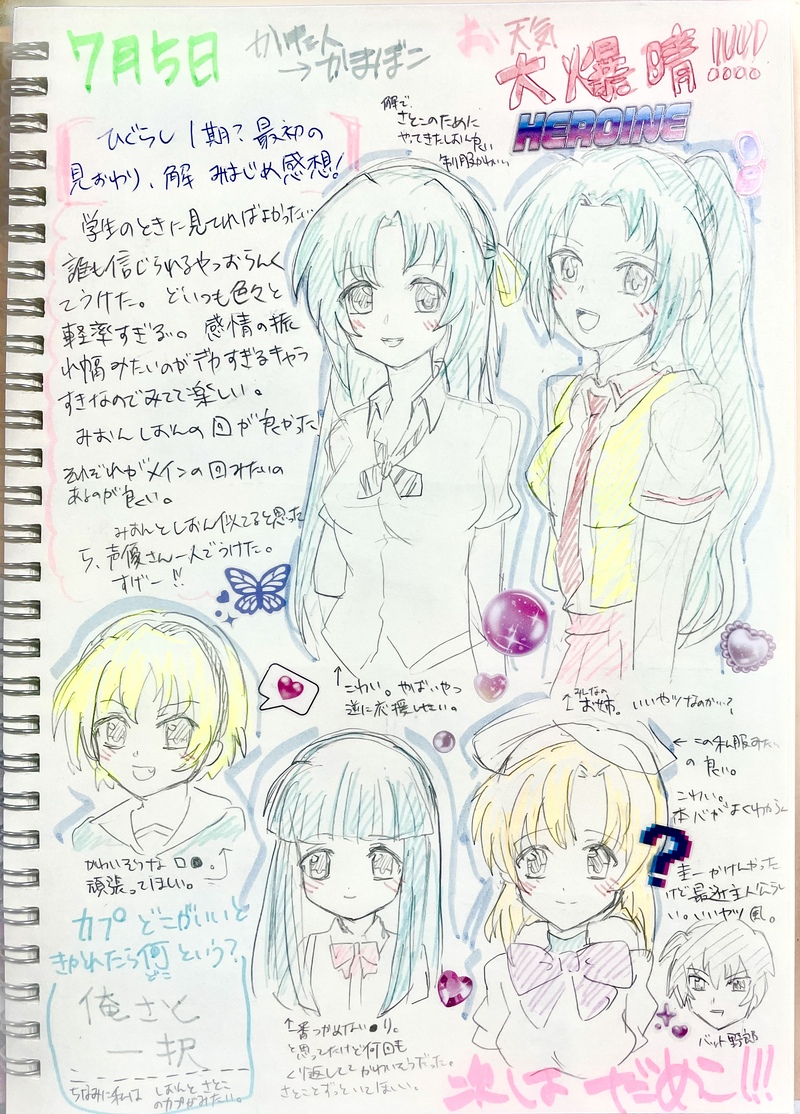 7月5日
かげた人
→かまぼこ
お天気
大爆晴!!!!
HEROINE
解で、
さとこのために
やってきたしおん良い
制服かわいい
ひぐらし1期?最初の
見おわり、解 みはじめ感想!
学生のときに見てればよかった…
誰も信じられるやつおらんく
てうけた。どいつも色々と
軽率すぎる。感情の振
れ幅みたいのがデカすぎるキャラ
すきなのでみてて楽しい。
みおんしおんの回が良かった!
それぞれがメインの回みたいの
あるのが良い。
みおんとしおん似てると思った
ら、声優さん一人でうけた。
すげー!!
↑
こわい。やばいやつ
逆に応援したい。
↑みんなの
お姉。いいやツなのか…?
かわいそうな□●。↑
頑張ってほしい。
← この私服みたい
の良い。
こわい。
本心がよくわからん
?
圭一かけんやった
けど最近主人公らし
い。いいヤツ風。
バット野郎
カプどこがいいと
きかれたら何という?
俺さと
一択
ちなみに私は しおんとさとこ
のカプがみたい。
↑一番つかめない●り。
と思ってたけど何回も
くり返してとかわいそうだった。
さとことずっといてほしい。
次しは だめこ!!!